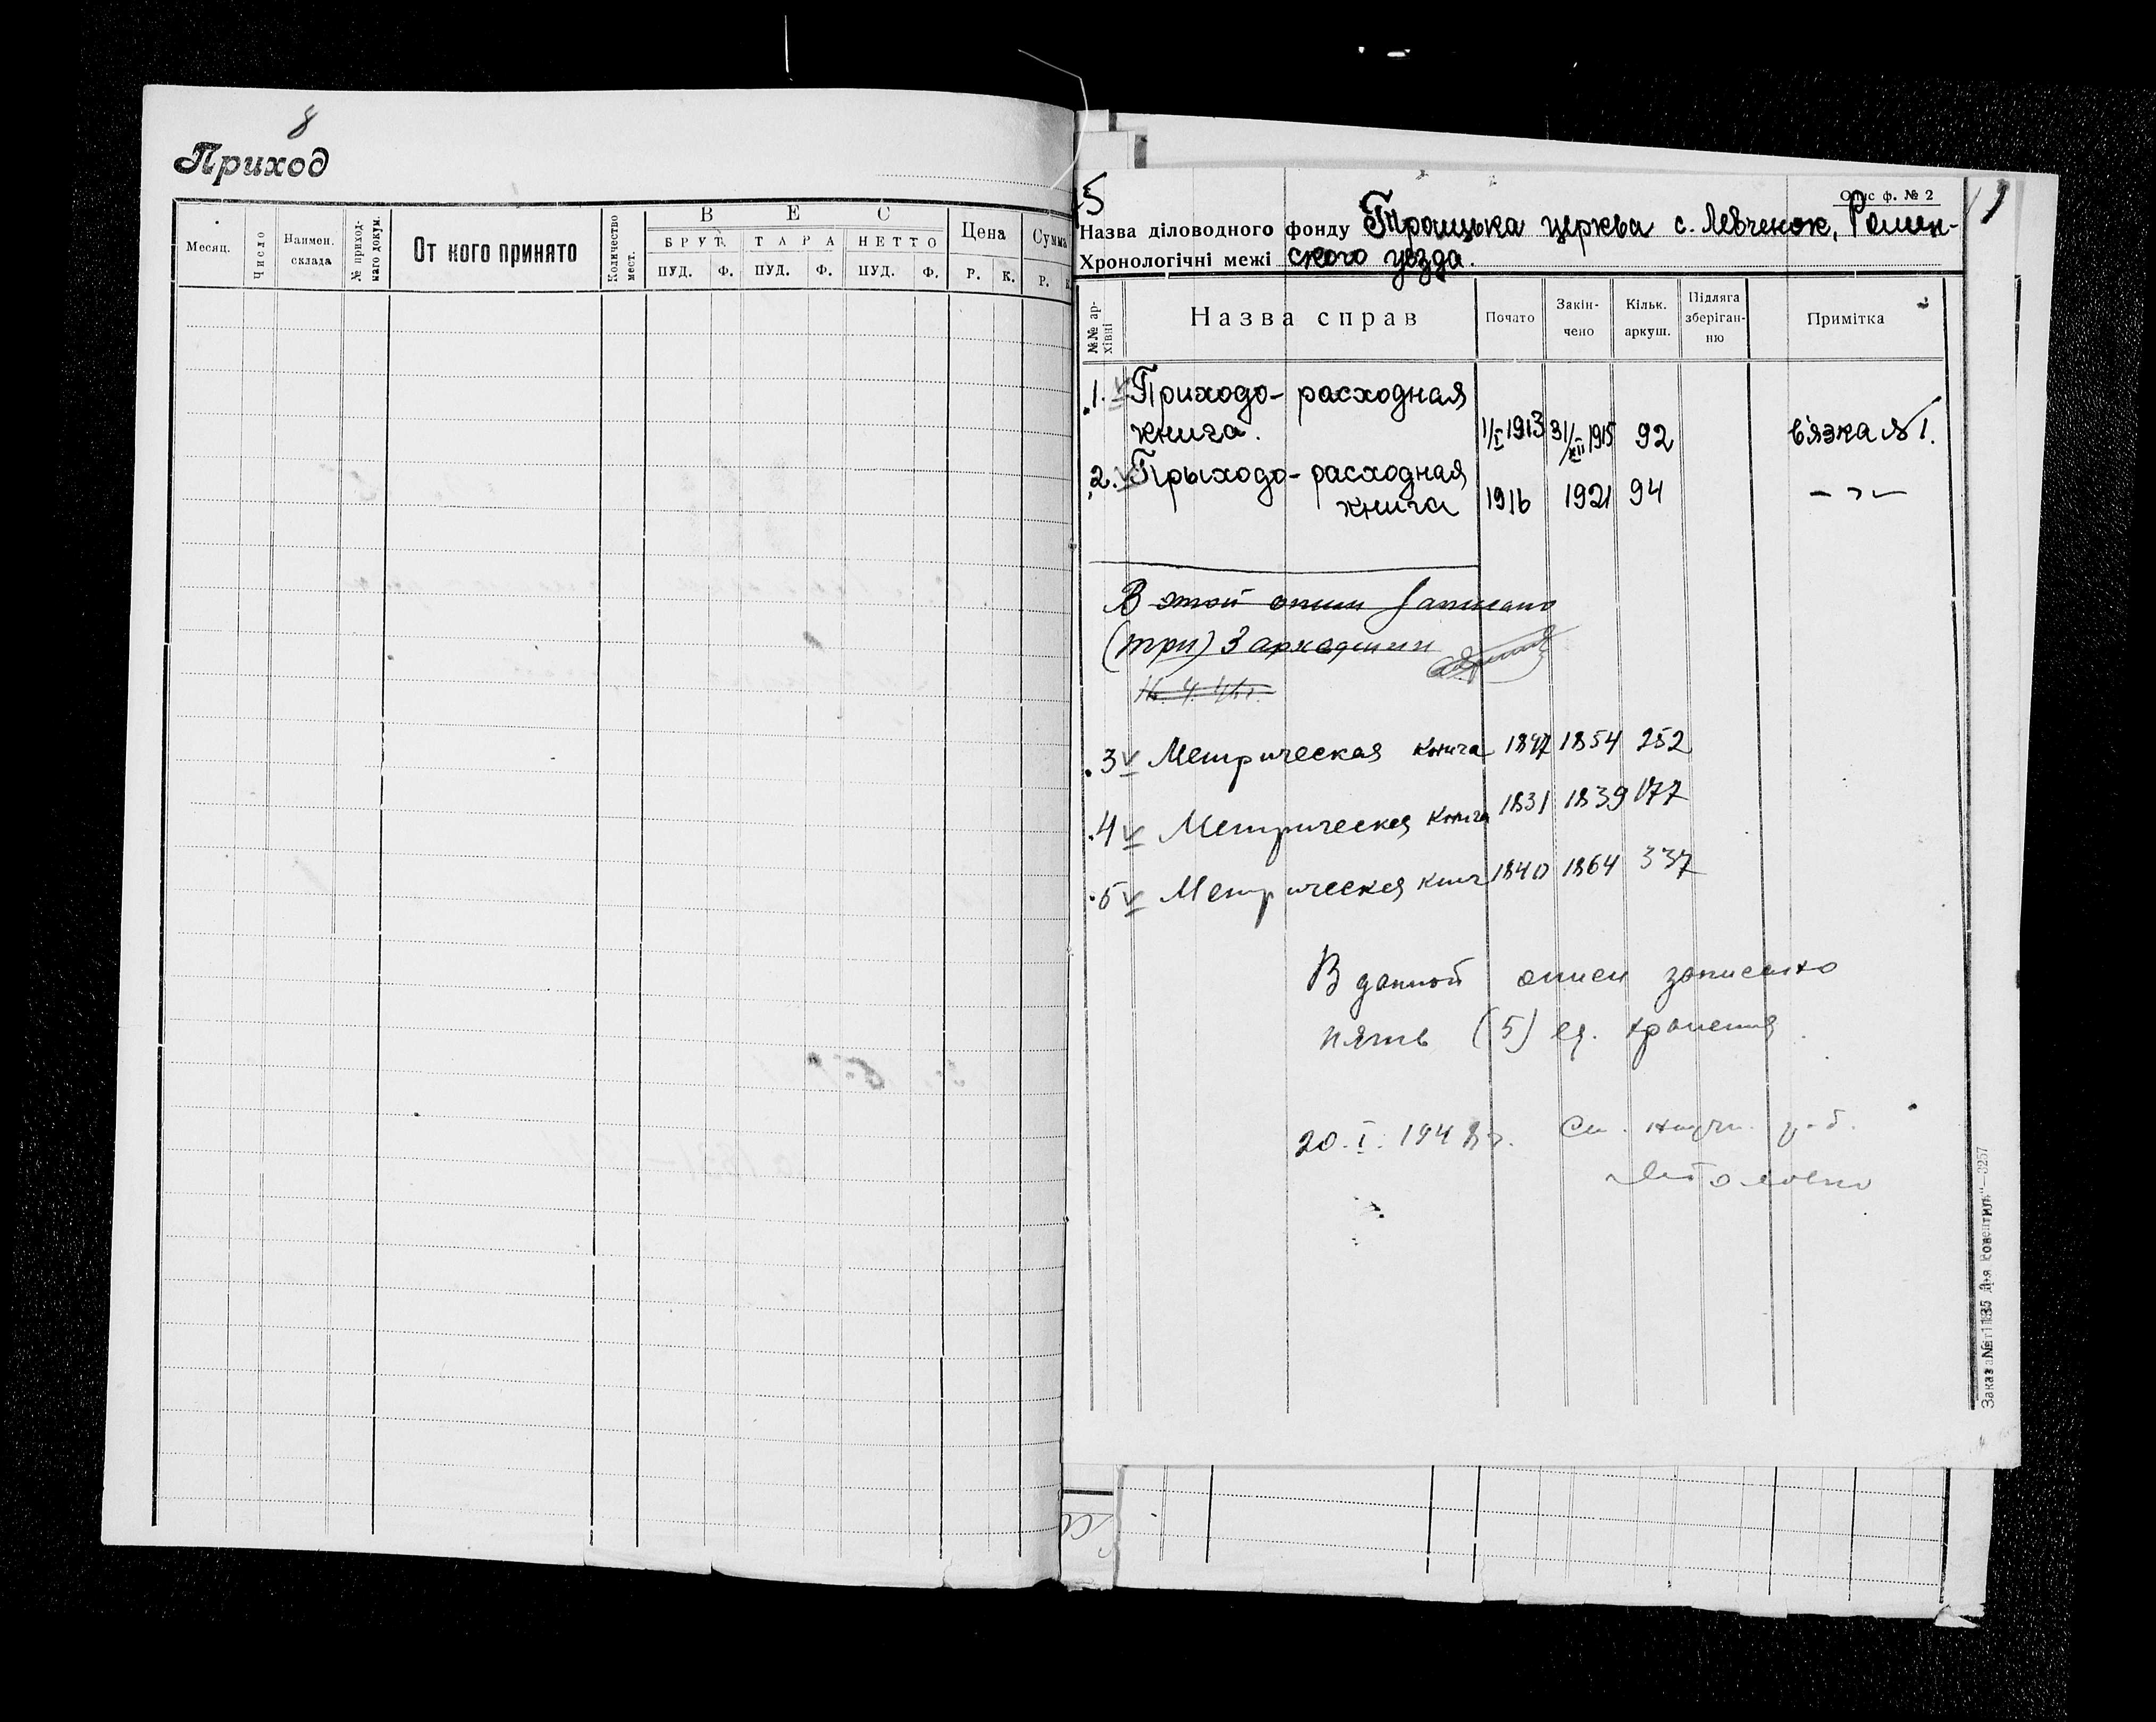 8
Приход
Месяц.
Число
Наимен. склада
№ приход-
наго докум.
От кого принято
Количество
мест.
ВЕС
БРУТ. ТАРА НЕТТО
ПУД. Ф. ПУД. Ф. ПУД. Ф.
Цена
Р. К.
Сумма
Р.
5
Опис ф. № 2
Назва діловодного фонду Троицька церква с. Левченок, Ромен-
Хронологічні межі ского уезда.
№№ ар-
хівні
Назва справ
Почато
Закін-
чено
Кільк.
аркуш.
Підляга
зберіган-
ню
Примітка
1. v Приходо-расходная
книга. 1/I 1913 31/XII 1915 92 в'язка №1.
2. v Прыходо-расходная
книга 1916 1921 94 — " —
В этой описи записано
(три) 3
3 v Метрическая книга 1847 1854 252
4 v Метрическая книга 1831 1839 177
5 v Метрическая книг 1840 1864 337
В данной описи записано
пять (5) ед. хранения
20. I. 194 г. См. научн.